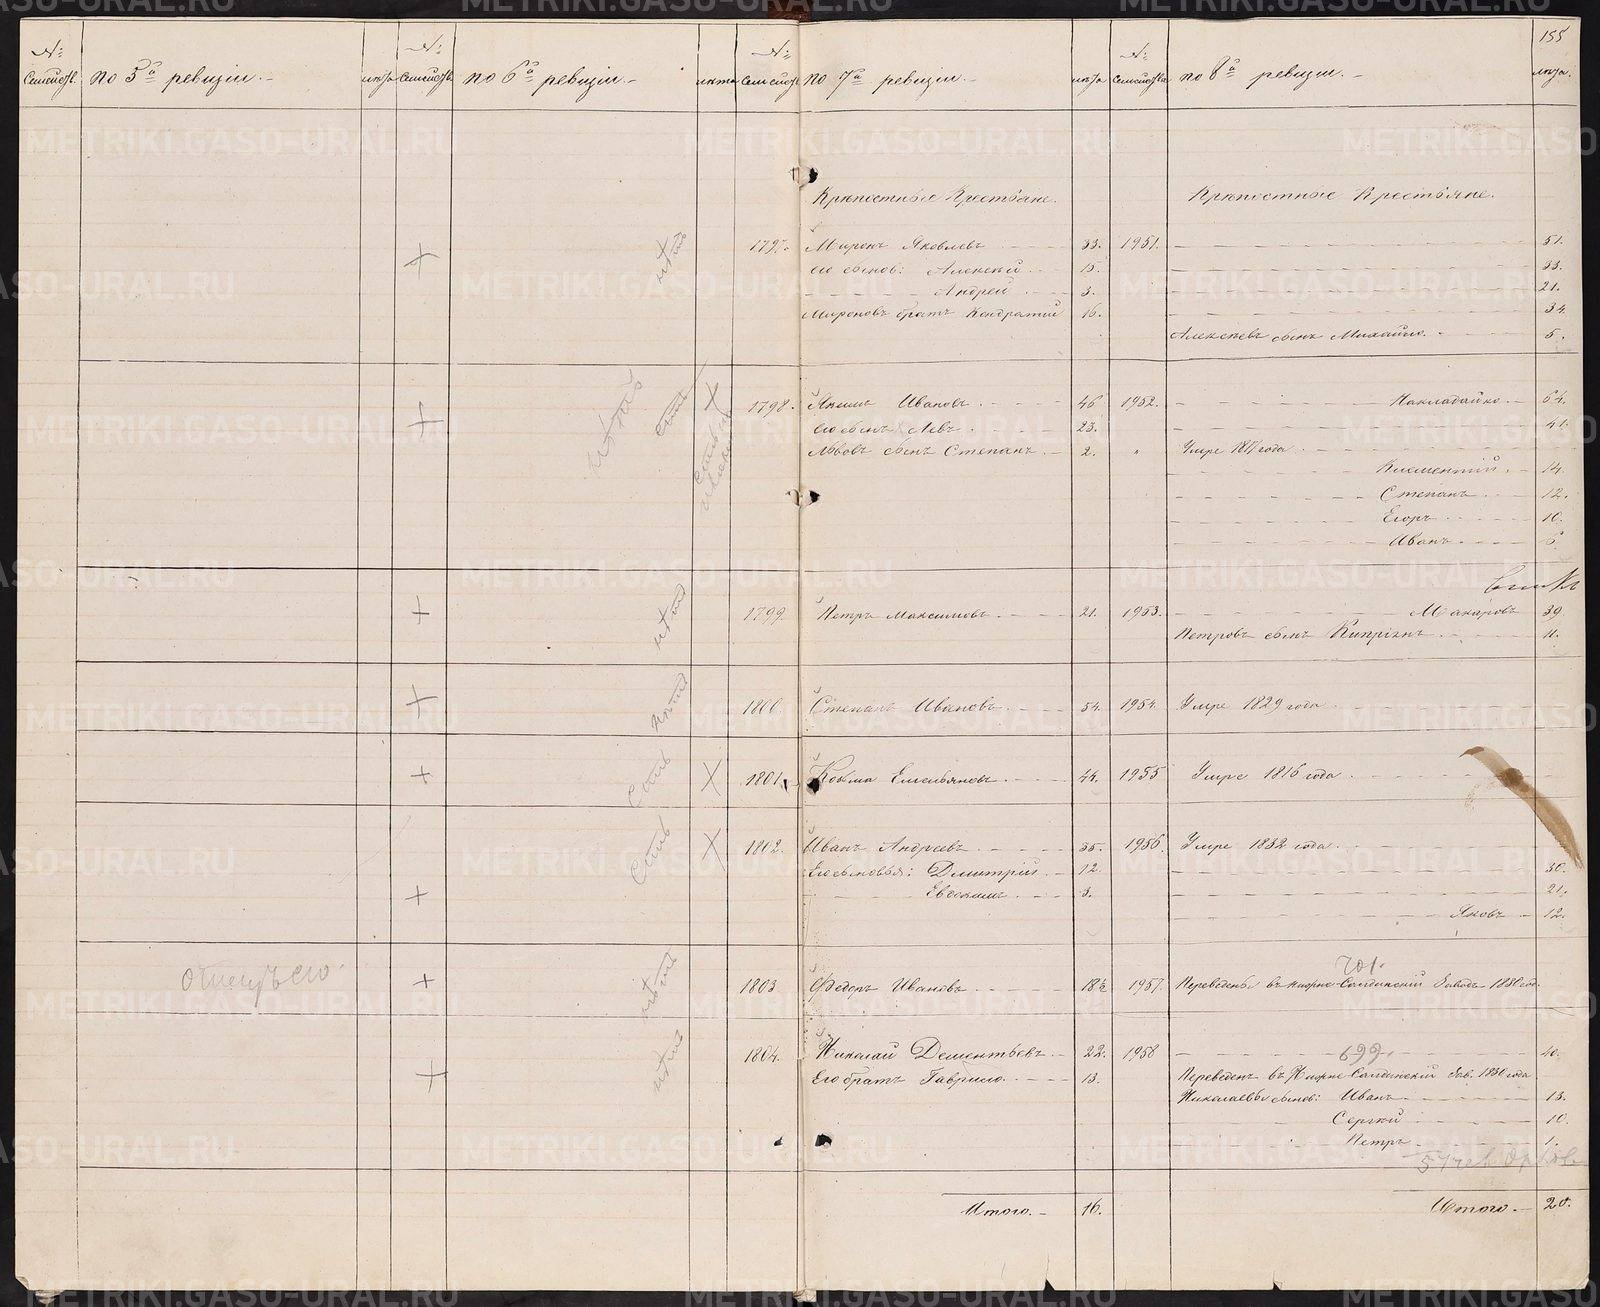 155
№: Семейств. по 5й ревизіи.- лѣта №: Семейств. по 6й ревизіи.- лѣта №: Семейств. по 7й ревизіи.- лѣта №: Семейства по 8й ревизіи.- лѣта.
Крѣпостные Крестьяне. Крѣпостные Крестьяне.
нѣтъ 1797. Миронъ Яковлевъ 33. 1951. 51.
его сынов: Алексѣй 15. 33.
Андрей 3. 21.
Мироновъ братъ Кондратій 16. 34.
Алексѣевъ сынъ Михайло. 5.
1798. Якимъ Ивановъ 46 1952. 64.
его сынъ Левъ 23. 41.
Львовъ сынъ Степанъ 2. " Умре 1817 года
14.
Степанъ 12.
Егоръ 10.
Иванъ 6.
1799. Петръ Максимовъ 21. 1953. Макаровъ 39.
Петровъ сынъ Кипріянъ 11.
1800. Степанъ Ивановъ 54. 1954. Умре 1829 года
1801. Козма Емельяновъ 44. 1955 Умре 1816 года
1802. Иванъ Андреевъ 35. 1956. Умре 1832 года
Его сыновья: Дмитрій 12. 30.
Евдокимъ 3. 21.
Яковъ 12.
701.
отпущъего 1803 Ѳедоръ Ивановъ 18½ 1957. Переведенъ въ Нижне-Салдинскій Заводъ 1830 год.
1804. Николай Дементьевъ 22. 1958 699. 40.
Его братъ Гаврило 13. Переведенъ въ Нижне-Салдинскій Зав. 1830 года
Николаевы сынов: Иванъ 13.
Сергѣй 10.
Петръ 1.
Итого.- 16. Итого.- 20.
METRIKI.GASO-URAL.RU